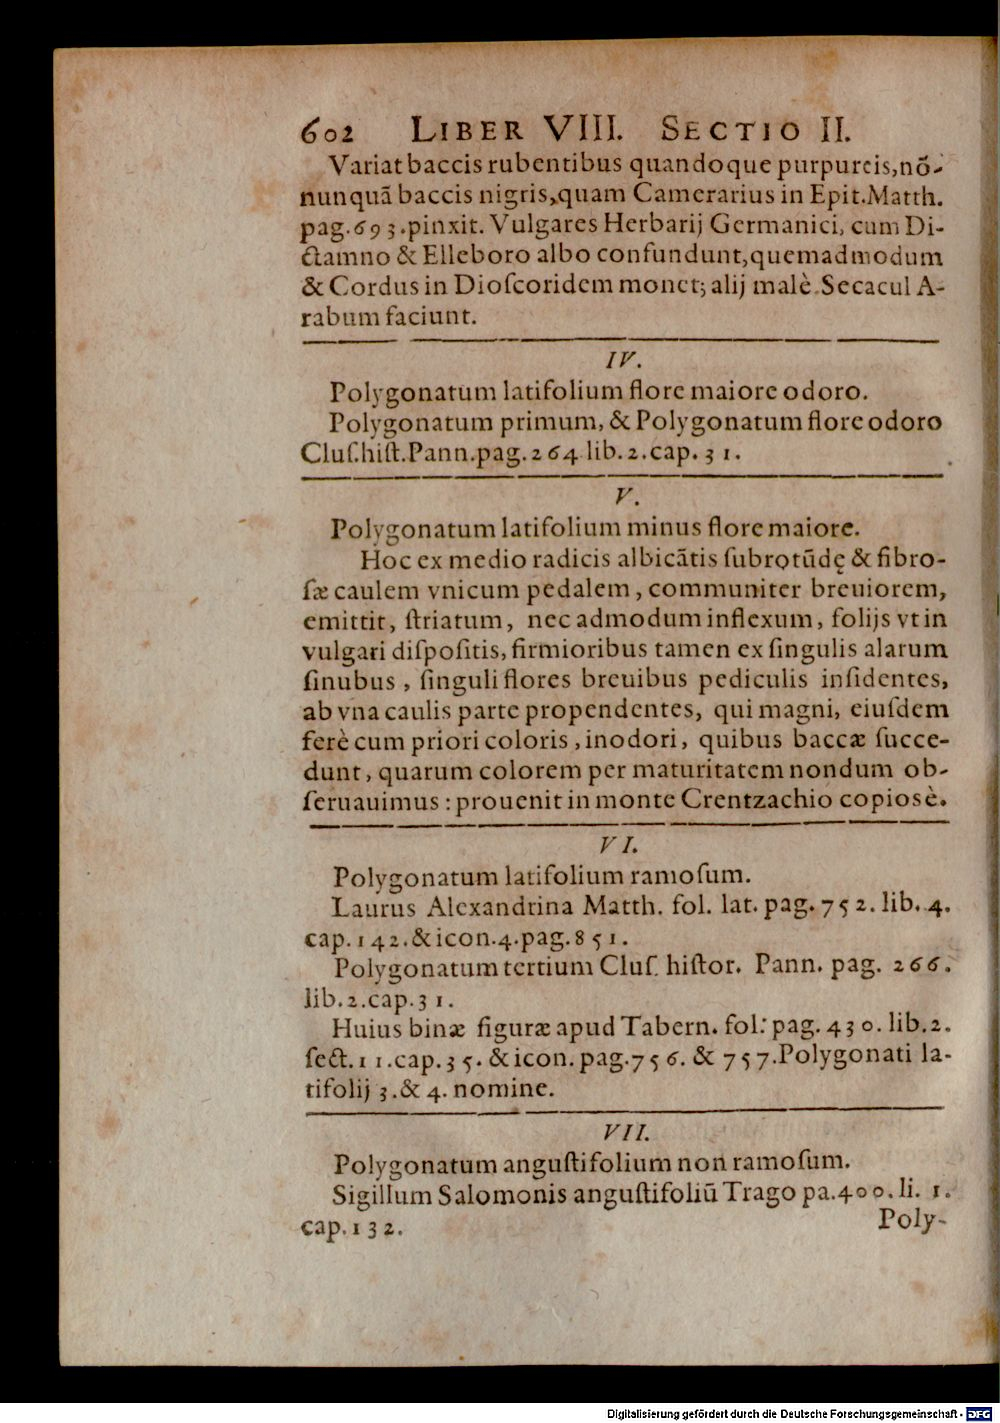 602 LIBER VIII. SECTIO II.
Variat baccis rubentibus quandoque purpureis, nō-
nunquā baccis nigris, quam Camerarius in Epit. Matth.
pag. 693. pinxit. Vulgares Herbarij Germanici, cum Di-
ctamno & Elleboro albo confundunt, quemadmodum
& Cordus in Dioſcoridem monet; alij malè Secacul A-
rabum faciunt.
IV.
Polygonatum latifolium flore maiore odoro.
Polygonatum primum, & Polygonatum flore odoro
Cluſ. hiſt. Pann. pag. 264 lib. 2. cap. 31.
V.
Polygonatum latifolium minus flore maiore.
Hoc ex medio radicis albicātis ſubrotūdę & fibro-
ſæ caulem vnicum pedalem, communiter breuiorem,
emittit, ſtriatum, nec admodum inflexum, folijs vt in
vulgari diſpoſitis, firmioribus tamen ex ſingulis alarum
ſinubus, ſinguli flores breuibus pediculis inſidentes,
ab vna caulis parte propendentes, qui magni, eiuſdem
ferè cum priori coloris, inodori, quibus baccæ ſucce-
dunt, quarum colorem per maturitatem nondum ob-
ſeruauimus: prouenit in monte Crentzachio copiosè.
VI.
Polygonatum latifolium ramoſum.
Laurus Alexandrina Matth. fol. lat. pag. 752. lib. 4.
cap. 142. & icon. 4. pag. 851.
Polygonatum tertium Cluſ. hiſtor. Pann. pag. 266.
lib. 2. cap. 31.
Huius binæ figuræ apud Tabern. fol. pag. 430. lib. 2.
ſect. 11. cap. 35. & icon. pag. 756. & 757. Polygonati la-
tifolij 3. & 4. nomine.
VII.
Polygonatum anguſtifolium non ramoſum.
Sigillum Salomonis anguſtifoliū Trago pa. 400. li. 1.
cap. 132.
Poly-
Digitalisierung gefördert durch die Deutsche Forschungsgemeinschaft - DFG